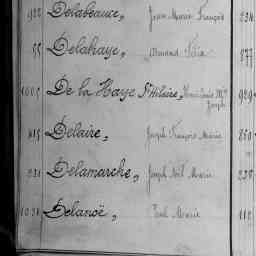 922 Delabeauce, Jean Marie François 234
55 Delahaye, Armand 877
1005 De la Haye St Hilaire, Henri Louis Mie Joseph 929
415 Delaire, Joseph François Marie 850
231 Delamarche, Joseph Noël Marie 235
1031 Delanoë, Paul Marie 112